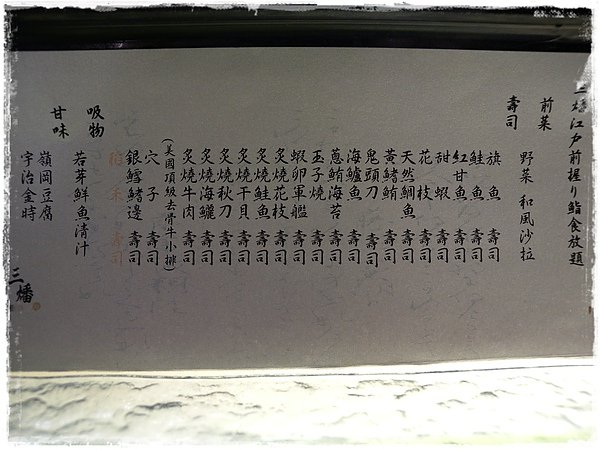 三燔江戶前握り鮨食放題
前菜
野菜 和風沙拉
壽司
旗魚 壽司
鮭魚 壽司
紅甘魚 壽司
甜蝦 壽司
花枝 壽司
天然鯛魚 壽司
黃鰭鮪 壽司
鬼頭刀 壽司
海鱸魚 壽司
蔥鮪海苔 壽司
玉子燒 壽司
蝦卵軍艦 壽司
炙燒花枝 壽司
炙燒鮭魚 壽司
炙燒干貝 壽司
炙燒秋刀 壽司
炙燒海鱺 壽司
炙燒牛肉 壽司
(美國頂級去骨牛小排)
穴子 壽司
銀鱈鰭邊 壽司
壽司
吸物
若芽鮮魚清汁
甘味
嶺岡豆腐
宇治金時
三燔